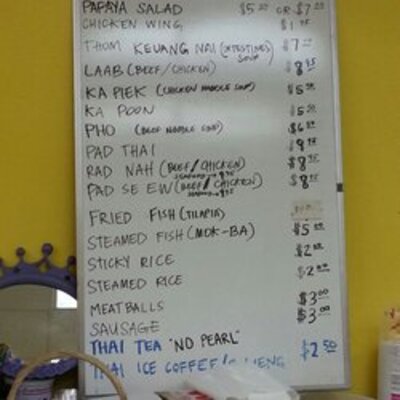 PAPAYA SALAD $5.50 OR $7.00
CHICKEN WING $1.75
THOM KEUANG NAI (INTESTINES SOUP) $7
LAAB (BEEF/CHICKEN) $8.95
KA PIEK (CHICKEN NOODLE SOUP) $5.50
KA POON $5.50
PHO (BEEF NOODLE SOUP) $6
PAD THAI
RAD NAH (BEEF/CHICKEN) $8.95
SEAFOOD → 9.95
PAD SE EW (BEEF/CHICKEN) $8.95
FRIED FISH (TILAPIA)
STEAMED FISH (MOK-BA) $5
STICKY RICE $2
STEAMED RICE $2
MEATBALLS $3.00
SAUSAGE $3.00
THAI TEA "NO PEARL"
THAI ICE COFFEE $2.50